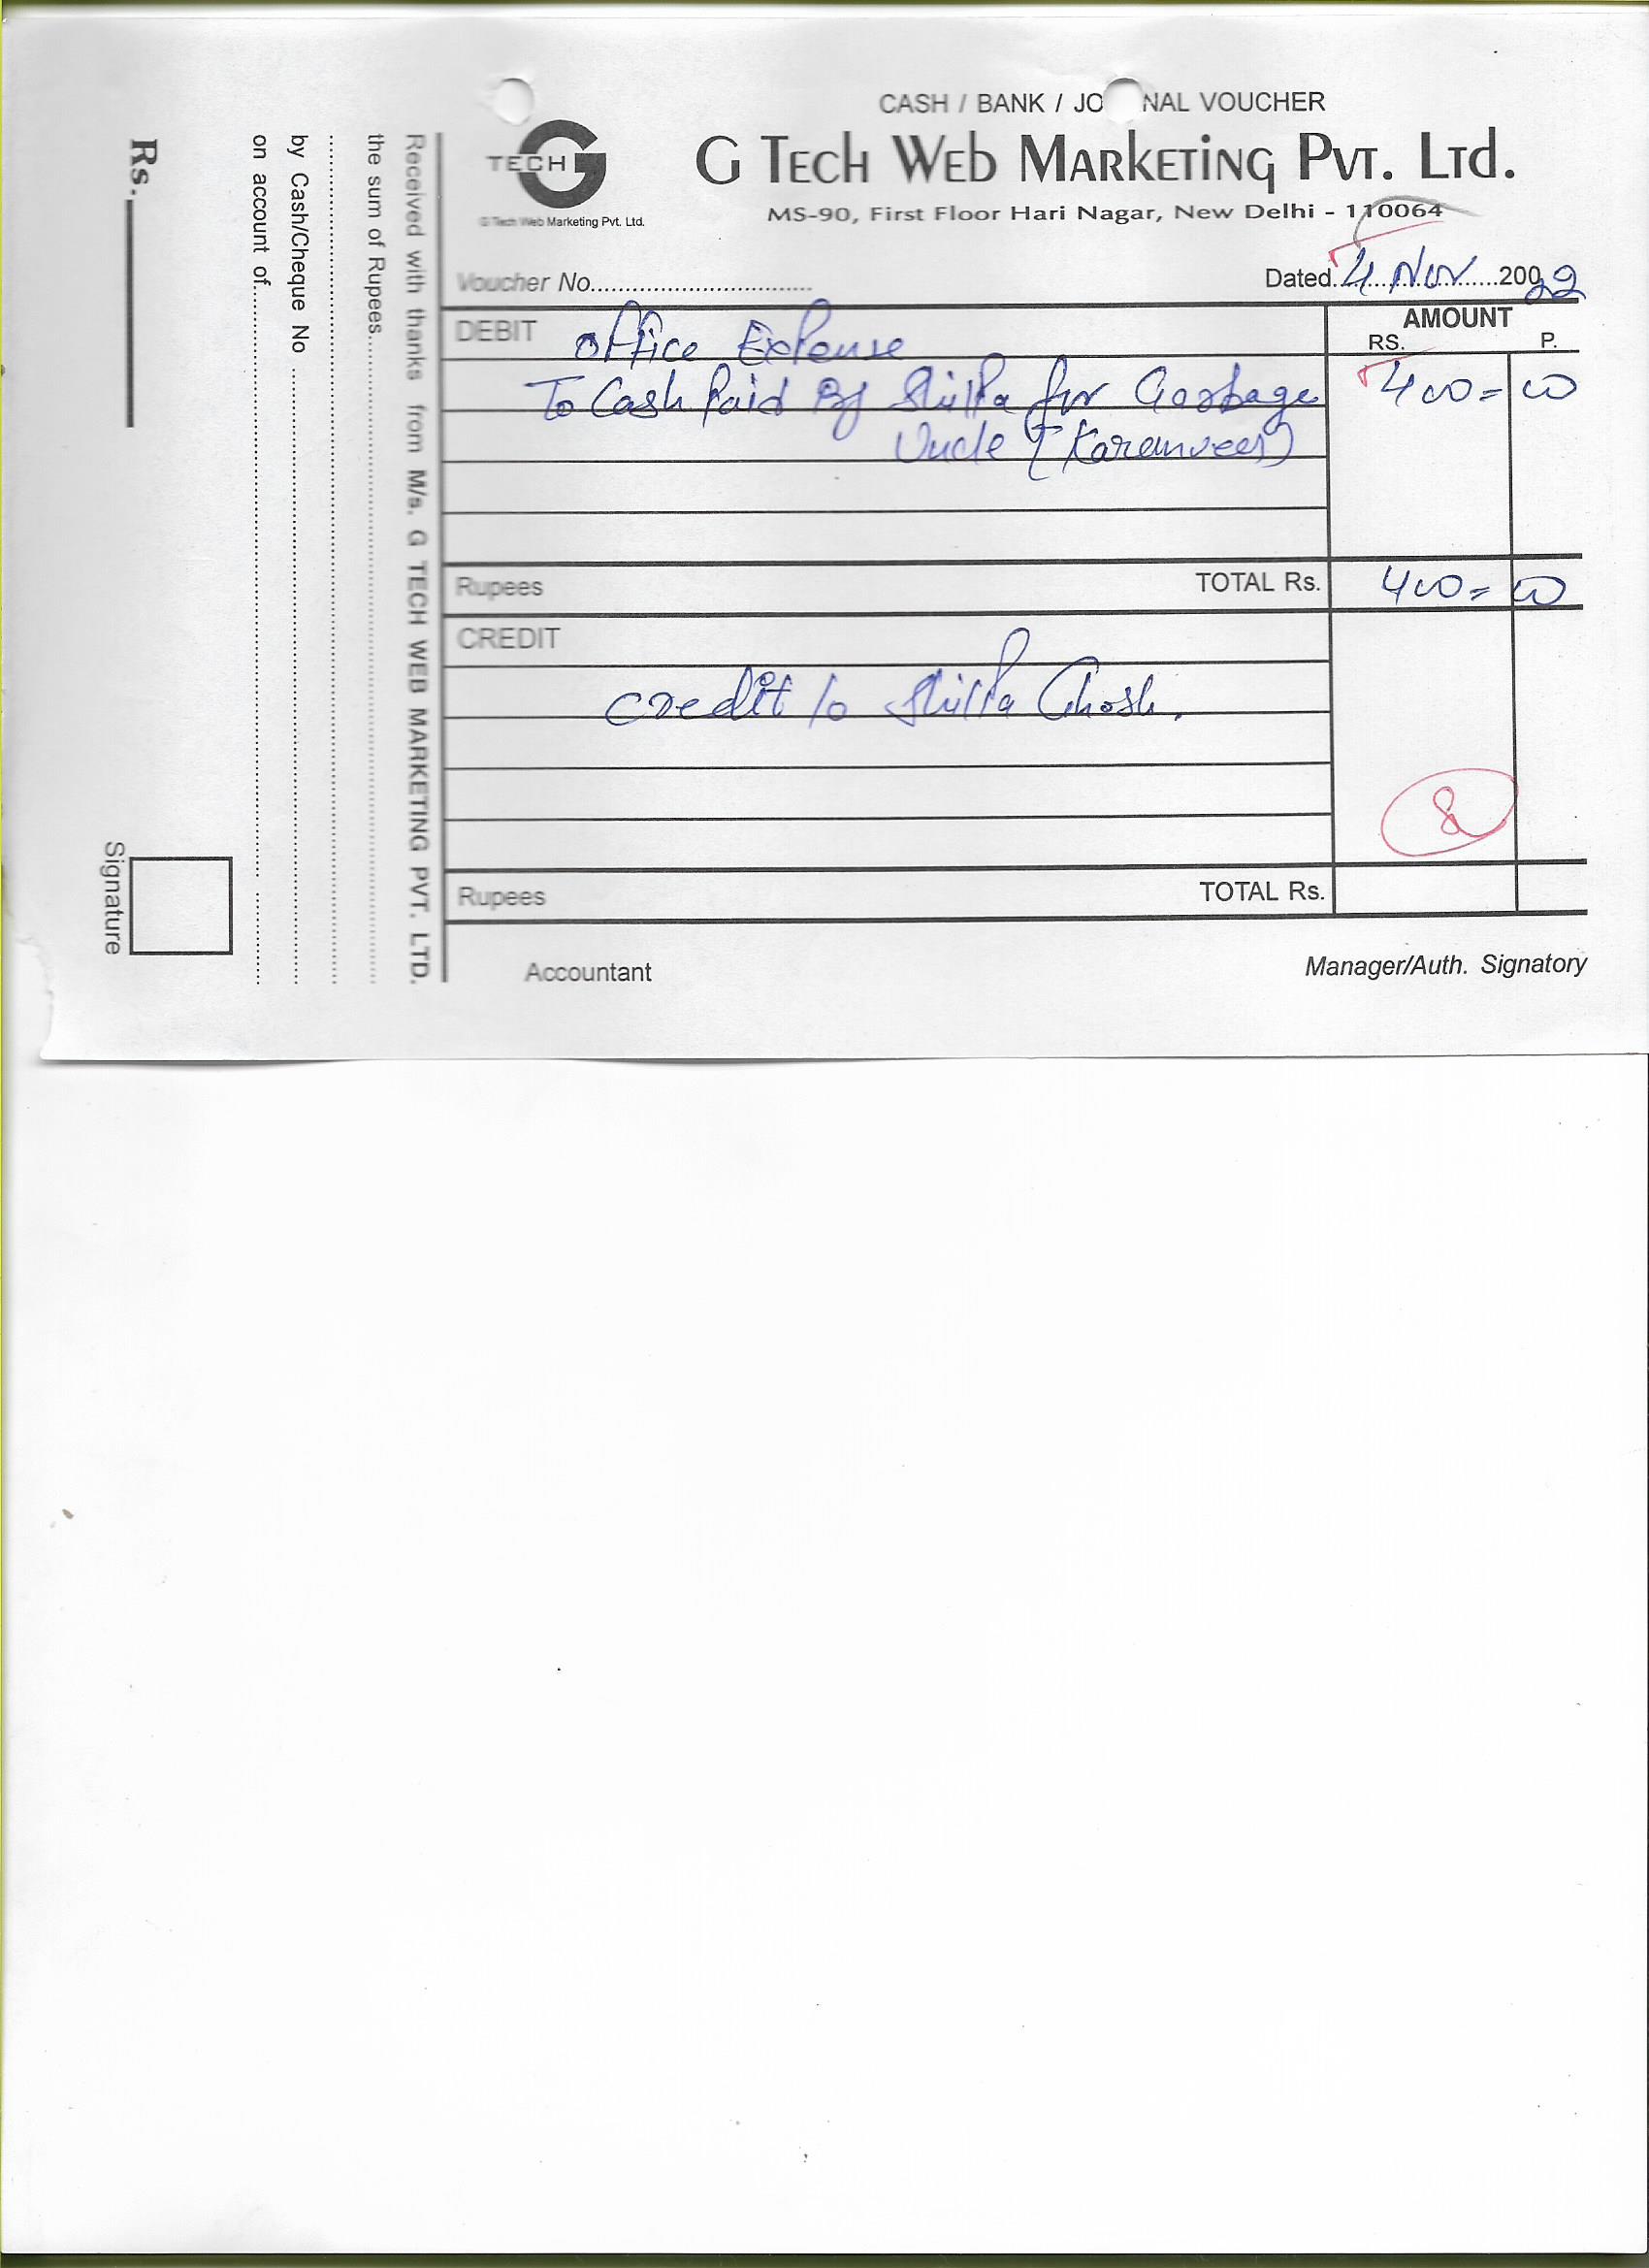 CASH / BANK / JO NAL VOUCHER
TECH G
G Tech Web Marketing Pvt. Ltd.
G Tech Web Marketing Pvt. Ltd.
MS-90, First Floor Hari Nagar, New Delhi - 110064
Voucher No................................
Dated. 4 Nov 20022
DEBIT office Expense
AMOUNT
RS. P.
To Cash Paid By Shilpa for Garbage 400= 00
Uncle (Karanveer)
Rupees TOTAL Rs. 400= 00
CREDIT
credit to Shilpa Ghosh.
8
Rupees TOTAL Rs.
Accountant Manager/Auth. Signatory
Received with thanks from M/s. G TECH WEB MARKETING PVT. LTD.
the sum of Rupees
by Cash/Cheque No
on account of
Rs.
Signature